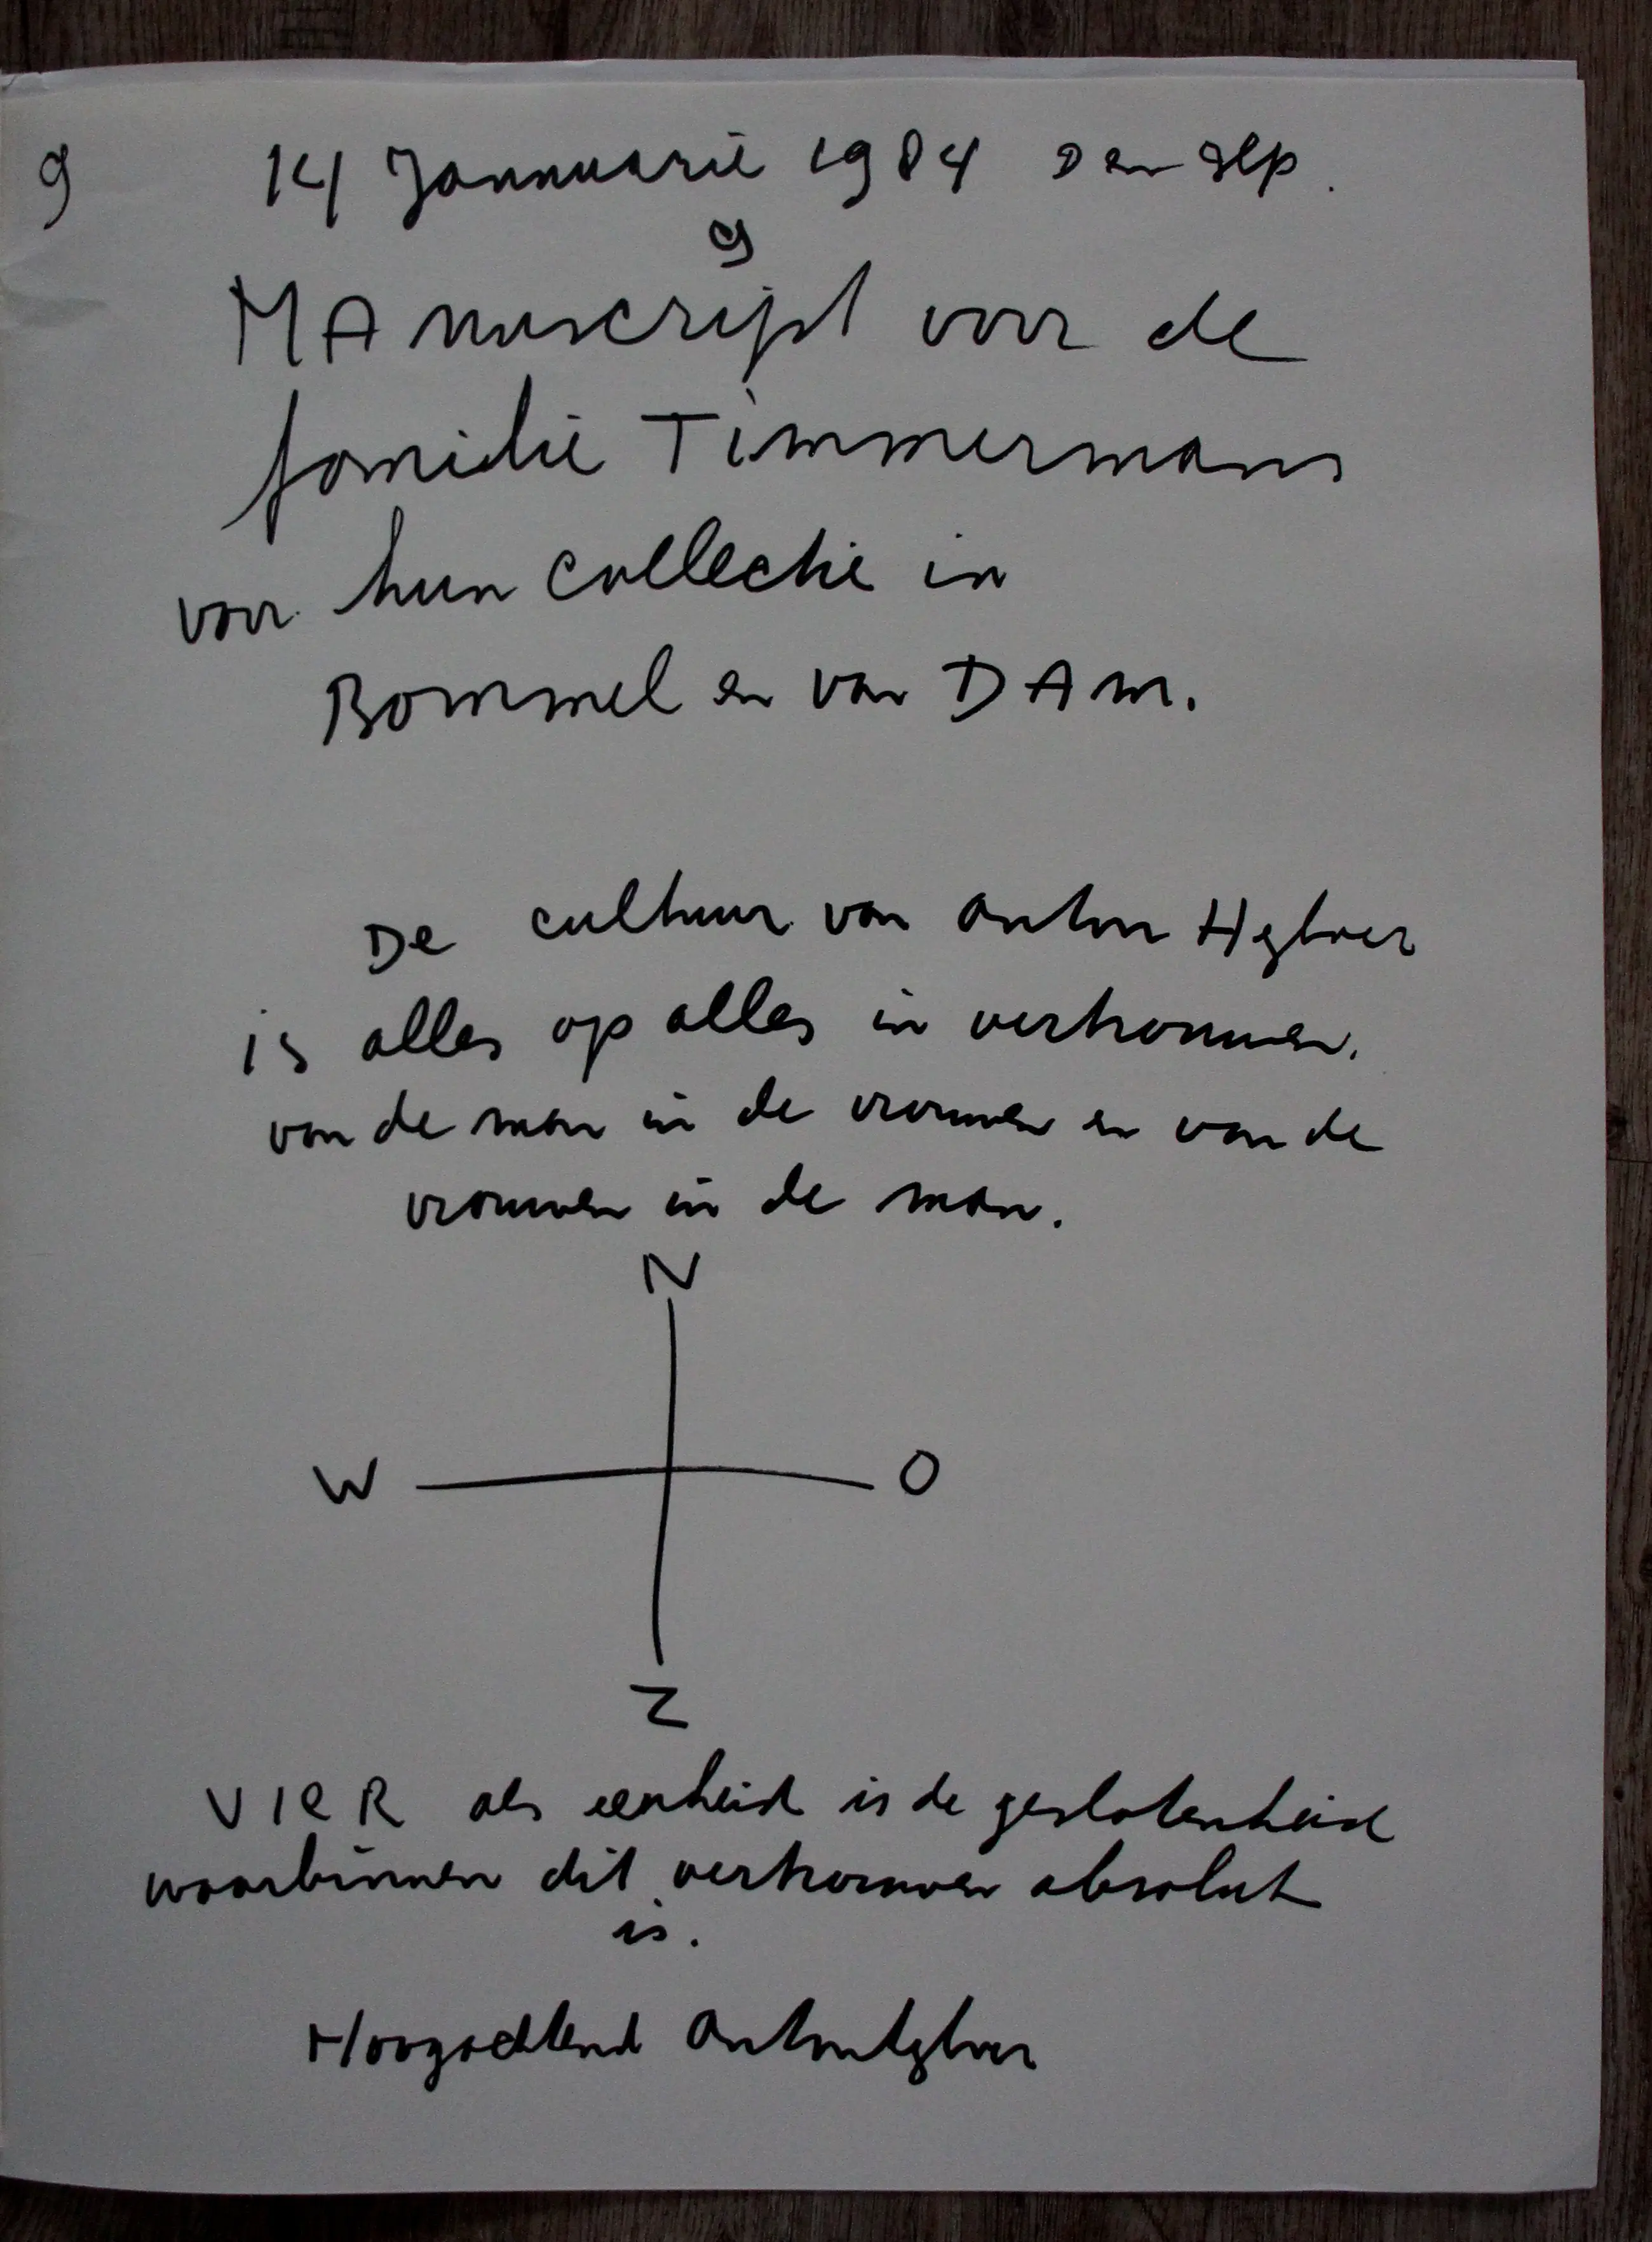 9 14 Januarie 1984 Den Ilp.
9
MAnuscript voor de
familie Timmermans
voor hun collectie in
Bommel en van DAm.
De cultuur van Anton Heyboer
is alles op alles in vertrouwen.
van de man in de vrouwen en van de
vrouwen in de man.
N
W O
Z
VIER als eenheid is de geslotenheid
waarbinnen dit vertrouwen absoluut
is.
Hoogachtend Anton Heyboer